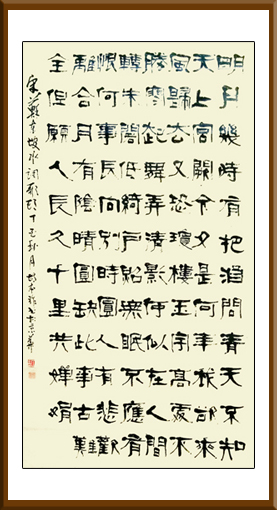 明月幾時有把酒問青天不知
天上宮闕今夕是何年我欲乘
風歸去又恐瓊樓玉宇高處不
勝寒起舞弄清影何似在人間
轉朱閣低綺戶照無眠不應有
恨何事長向別時圓人有悲歡
離合月有陰晴圓缺此事古難
全但願人長久千里共嬋娟
宋蘇東坡水調歌頭丁亥秋月